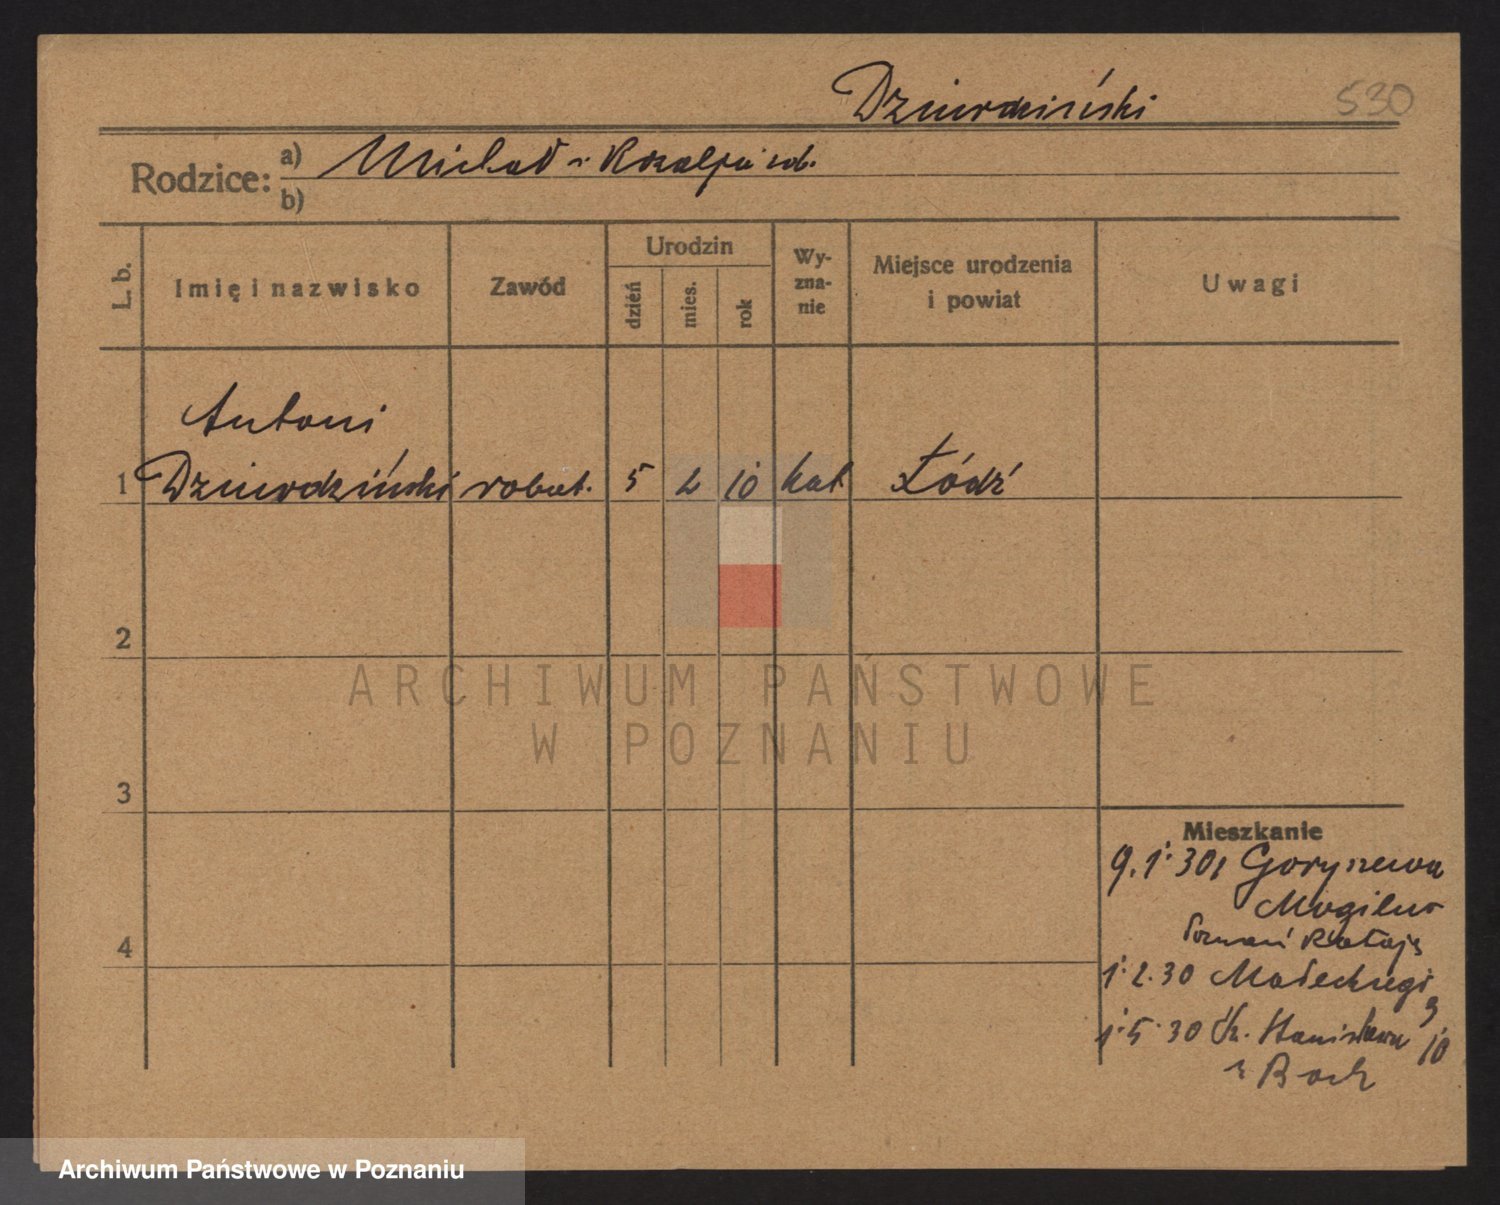 Dzierdziński 530
Rodzice: a) Michał i Rozalja
b)
L. b. Imię i nazwisko Zawód Urodzin dzień mies. rok Wyznanie Miejsce urodzenia i powiat Uwagi
Antoni
1 Dzierdziński robot. 5 2 10 kat. Łódź
2
ARCHIWUM PAŃSTWOWE
W POZNANIU
3
Mieszkanie
9. 1. 30
Mogilno
4
Poznań Rataje
1. 2. 30 Małeckiego 3
1. 5. 30 Stanisława 10
Archiwum Państwowe w Poznaniu